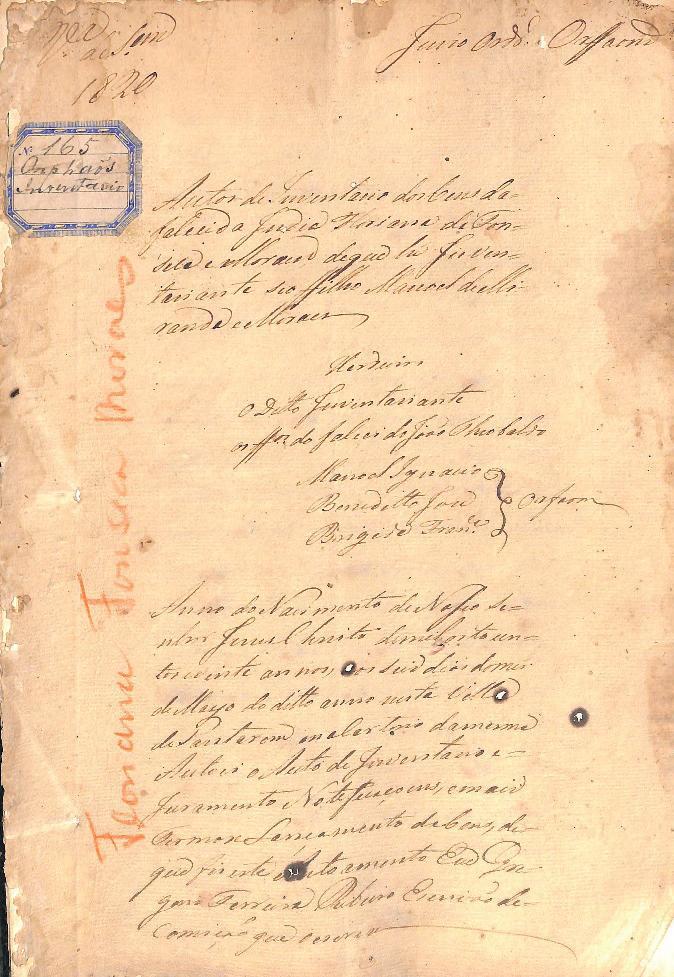 1820
Juizo Ord.º Orffaons
Nº 165
Orphaõs
Inventario
Autos de Inventario dos bens da
falecida India Floriana da Fon-
seca e Moraes de que he Inven-
tariante seo filho Manoel de Mi-
randa e Moraes
Herdeiros
O Ditto Inventariante
os ffos. do falecido João Theobaldo
Manoel Ignacio
Benedicto José
Brigida Franca.
Orfaons
Floriana Fonseca Moraes
Anno do Nascimento de Nosso Se-
nhor Jesus Christo de mil oito cen-
tos e vinte annos, aos seis dias do mes
de Mayo do ditto anno nesta Villa
de Santarem em o Cartorio da mesma
Autoei o Auto de Inventario e
Juramento Notificaçoens, e mais
termos Lançamento de bens, de
que fiz este Autoamento Eu
Ferreira Ribeiro Escrivão de
Comição que o escrevi